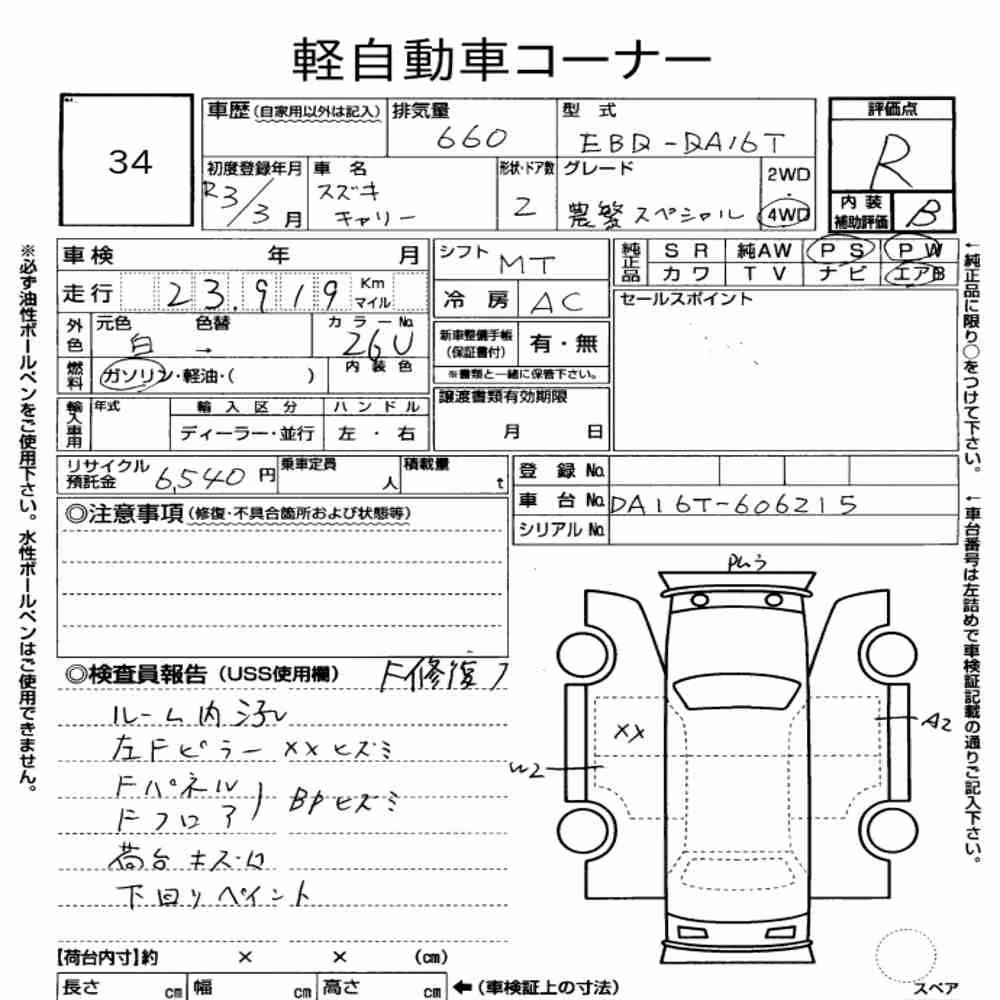 軽自動車コーナー
34
車歴(自家用以外は記入) 排気量 660 型 式 EBD-DA16T 評価点 R
初度登録年月 R3/3月 車 名 スズキ キャリー 形状・ドア数 2 グレード 農繁スペシャル 2WD・4WD 内装補助評価 B
車検 年 月
走行 23,919 Km マイル
外色 元色 白 色替 → カラーNo. 26U
燃料 ガソリン・軽油・( ) 内装色
輸入車用 年式 輸入区分 ディーラー・並行 ハンドル 左・右
シフト MT
冷 房 AC
新車整備手帳(保証書付) 有・無
※書類と一緒に保管下さい。
譲渡書類有効期限 月 日
純正品 SR 純AW PS PW
カワ TV ナビ エアB
セールスポイント
リサイクル預託金 6,540円 乗車定員 人 積載量 t
登 録 No.
車 台 No. DA16T-606215
シリアル No.
◎注意事項(修復・不具合箇所および状態等)
◎検査員報告(USS使用欄) F修復
ルーム内汚れ
左Fピラー XX ヒズミ
Fパネル
Fフロア BPヒズミ
荷台キズ・凹
下回りペイント
XX
A2
W2
【荷台内寸】約 × × (cm)
長さ cm 幅 cm 高さ cm ←(車検証上の寸法)
スペア
※必ず油性ボールペンをご使用下さい。水性ボールペンはご使用できません。
←純正品に限り○をつけて下さい。
←車台番号は左詰めで車検証記載の通りご記入下さい。